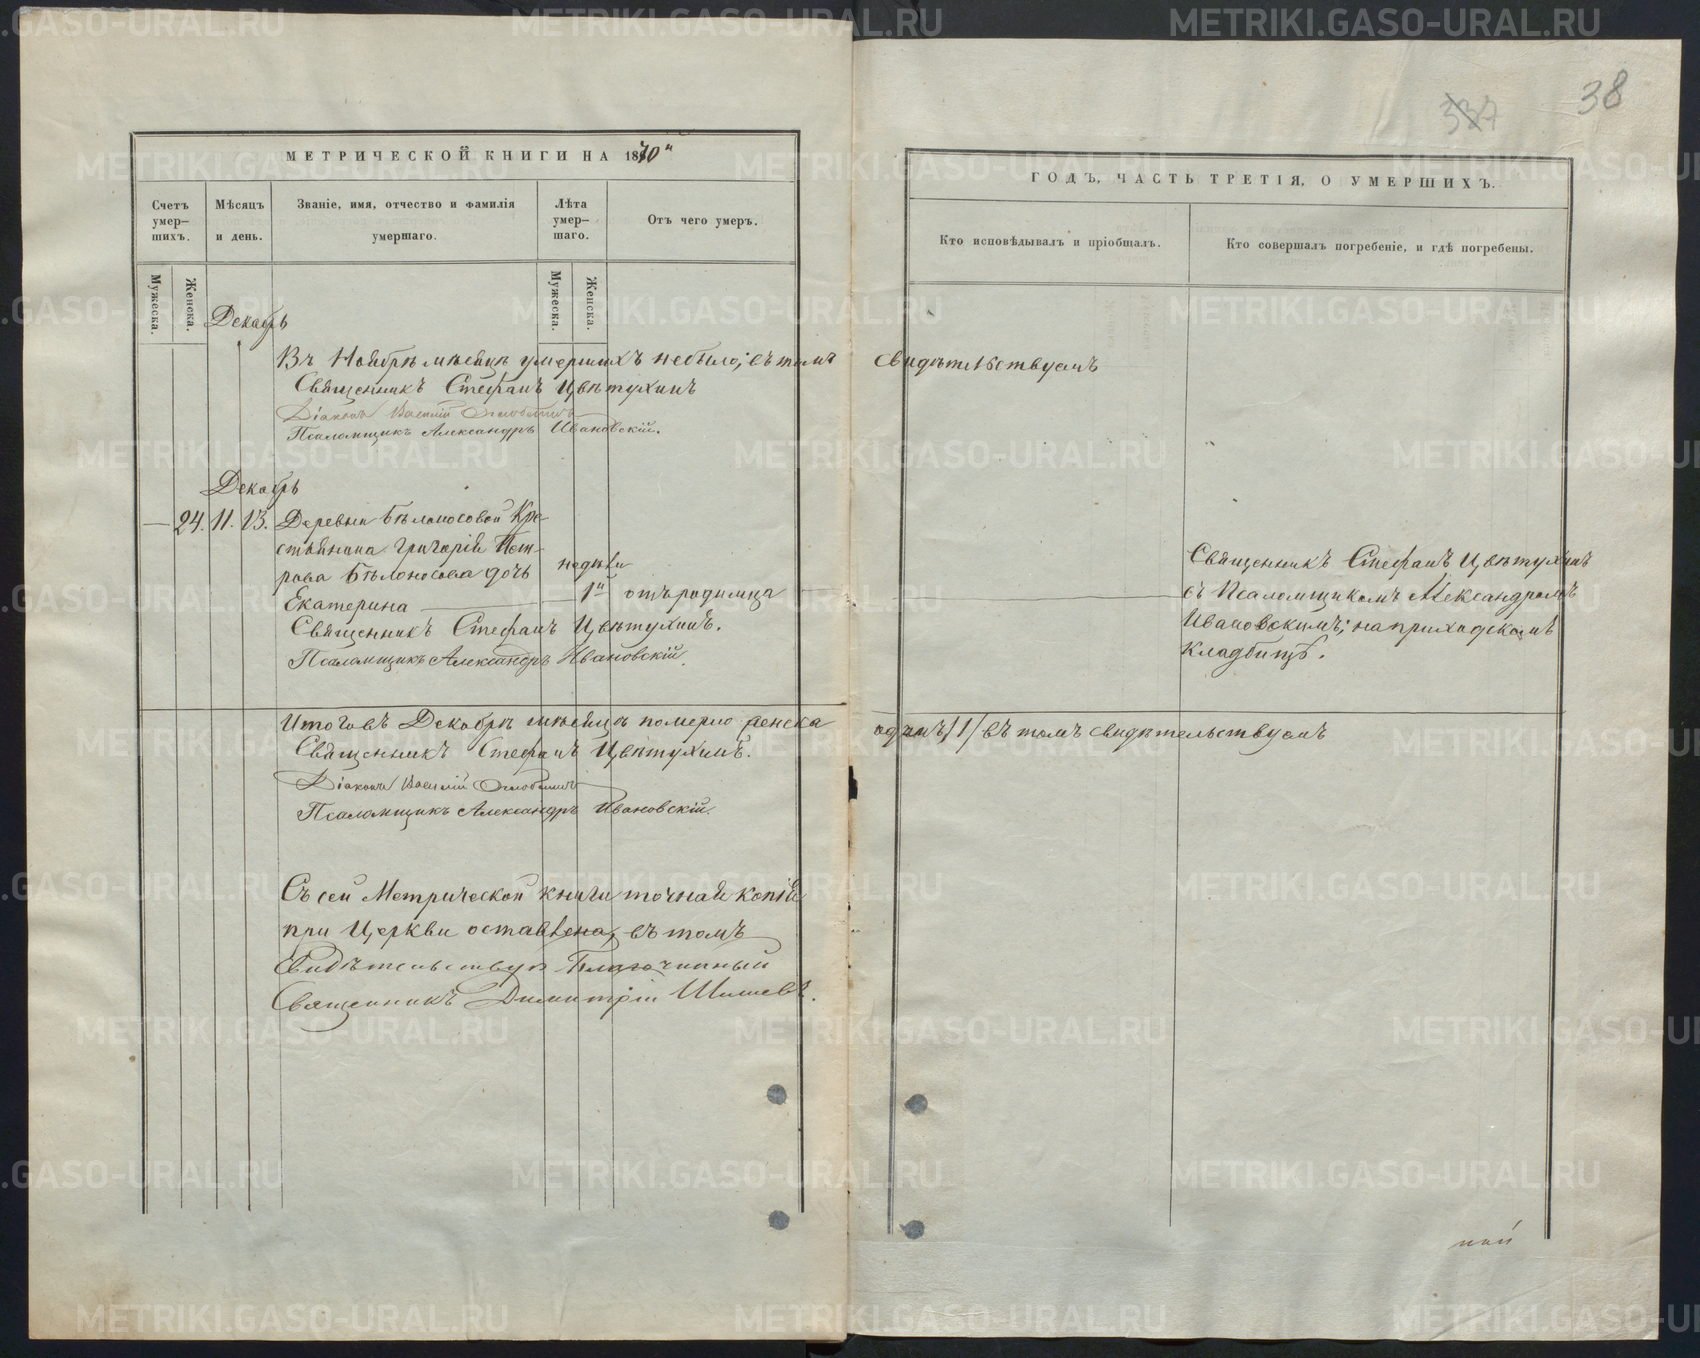 38
МЕТРИЧЕСКОЙ КНИГИ НА 1870
Счетъ умер-шихъ.
Мѣсяцъ и день.
Званіе, имя, отчество и фамилія умершаго.
Лѣта умер-шаго.
Отъ чего умеръ.
Мужеска.
Женска.
Мужеска.
Женска.
Декабрь
Въ Ноябрѣ мѣсяцѣ умершихъ небыло; въ томъ
Священникъ Стефанъ Цвѣтухинъ
Діаконъ Василій
Псаломщикъ Александръ Ивановскій.
Декабрь
— 24. 11. 13. Деревни Бѣлоносовой Кре-
стьянина Григорія Пет-
рова Бѣлоносова дочь недѣли
Екатерина 1 отъ родимца
Священникъ Стефанъ Цвѣтухинъ.
Псаломщикъ Александръ Ивановскій.
Итого въ Декабрѣ мѣсяцѣ померло женска
Священникъ Стефанъ Цвѣтухинъ.
Діаконъ Василій
Псаломщикъ Александръ Ивановскій.
Съ сей Метрической книги точная копія
при Церкви оставлена, въ томъ
Свидѣтельствую Благочинный
Священникъ Димитрій
ГОДЪ, ЧАСТЬ ТРЕТІЯ, О УМЕРШИХЪ.
Кто исповѣдывалъ и пріобщалъ.
Кто совершалъ погребеніе, и гдѣ погребены.
свидѣтельствуемъ
Священникъ Стефанъ Цвѣтухинъ
съ Псаломщикомъ Александромъ
Ивановскимъ; на приходскомъ
кладбищѣ.
одинъ /1/ въ томъ свидѣтельствуемъ
METRIKI.GASO-URAL.RU